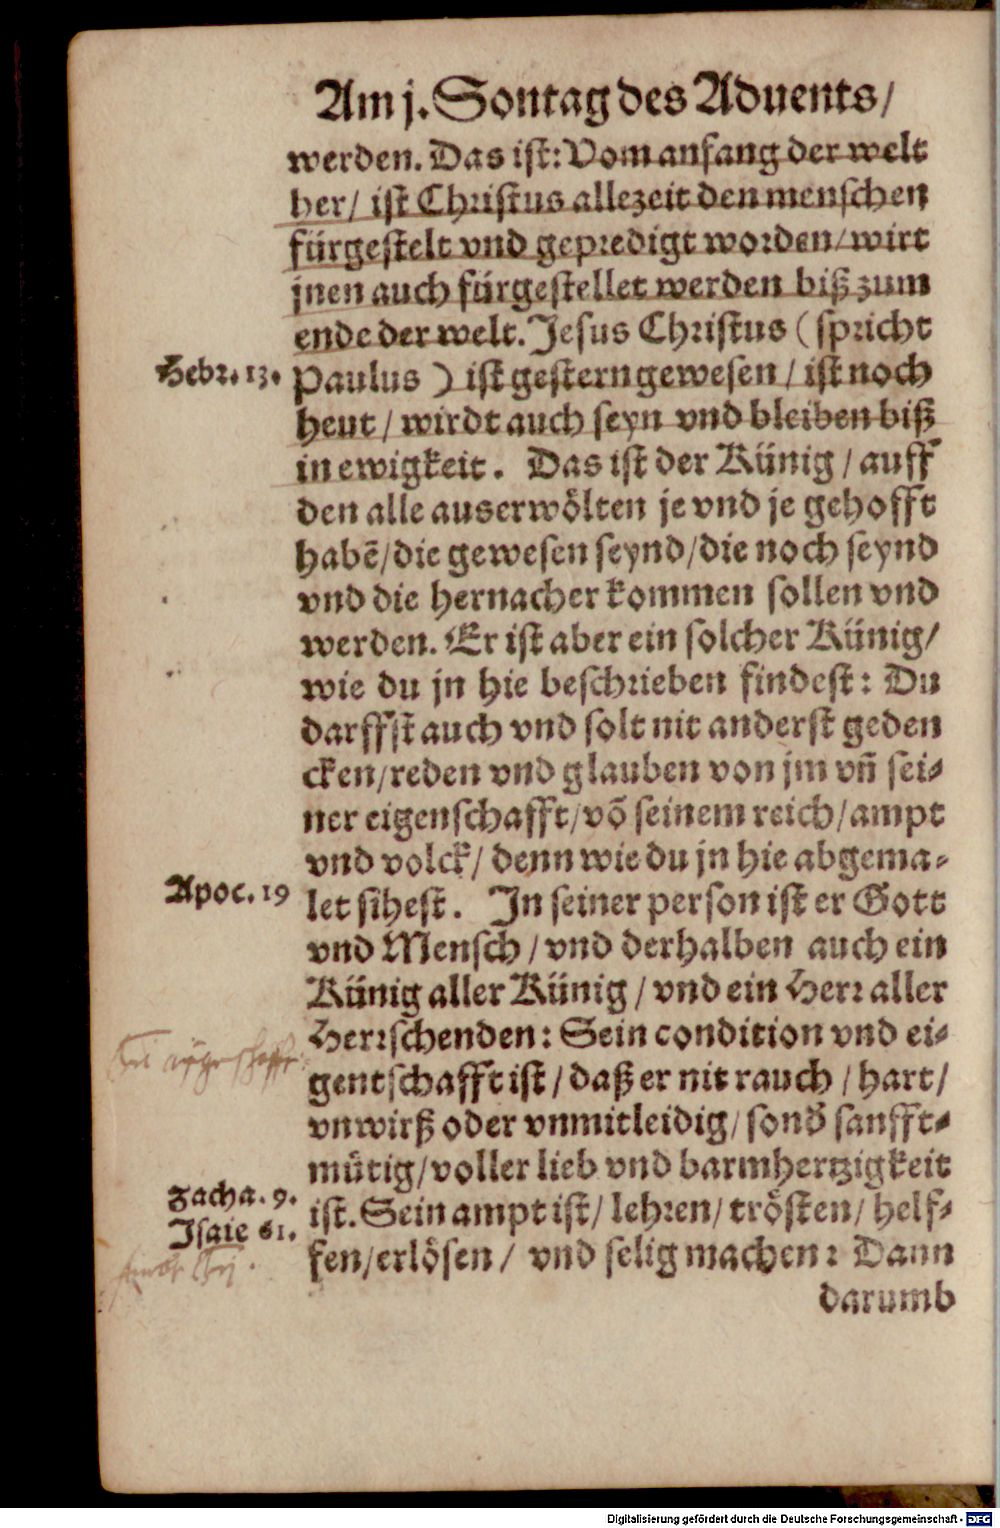 Am j. Sontag des Aduents/
werden. Das ist: Vom anfang der welt
her/ ist Christus allezeit den menschen
fürgestelt vnd gepredigt worden/ wirt
jnen auch fürgestellet werden biß zum
ende der welt. Jesus Christus ( spricht
Hebr. 13.
Paulus ) ist gestern gewesen / ist noch
heut / wirdt auch seyn vnd bleiben biß
in ewigkeit. Das ist der Künig / auff
den alle auserwölten je vnd je gehofft
habē/ die gewesen seynd/ die noch seynd
vnd die hernacher kommen sollen vnd
werden. Er ist aber ein solcher Künig/
wie du jn hie beschrieben findest: Du
darffst auch vnd solt nit anderst geden
cken/ reden vnd glauben von jm vñ sei-
ner eigenschafft/ võ seinem reich/ ampt
vnd volck/ denn wie du jn hie abgema-
Apoc. 19
let sihest. In seiner person ist er Gott
vnd Mensch / vnd derhalben auch ein
Künig aller Künig / vnd ein Herr aller
Herrschenden: Sein condition vnd ei-
gentschafft ist / daß er nit rauch / hart/
vnwirß oder vnmitleidig/ sond̄ sanfft-
mütig/ voller lieb vnd barmhertzigkeit
Zacha. 9.
ist. Sein ampt ist/ lehren/ trösten/ helf-
Isaie 61.
fen/ erlösen / vnd selig machen: Dann
darumb
Digitalisierung gefördert durch die Deutsche Forschungsgemeinschaft - DFG